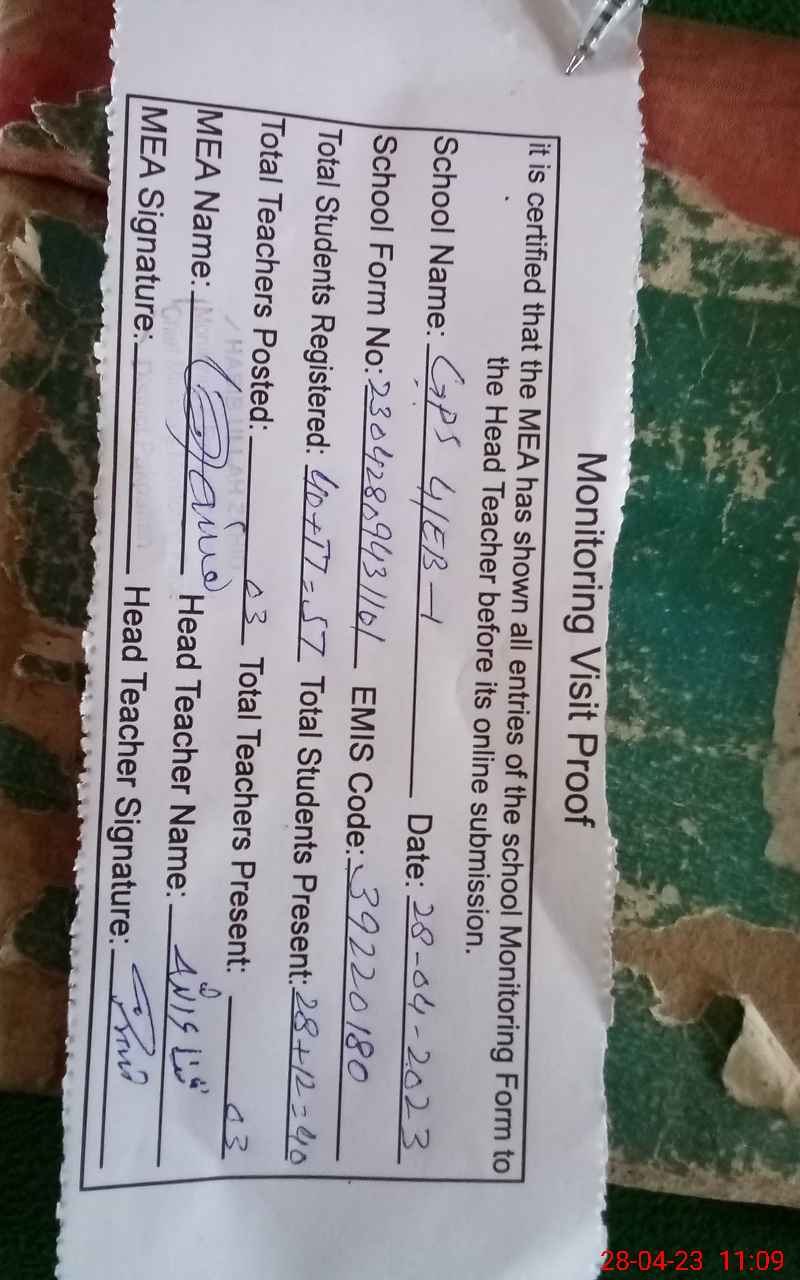 Monitoring Visit Proof
it is certified that the MEA has shown all entries of the school Monitoring Form to
the Head Teacher before its online submission.
School Name: GPS 4/EB-1 Date: 28-04-2023
School Form No: 23042809431101 EMIS Code: 39220180
Total Students Registered: 40+17=57 Total Students Present: 28+12=40
Total Teachers Posted: 03 Total Teachers Present: 03
MEA Name: Head Teacher Name:
MEA Signature: Head Teacher Signature:
28-04-23 11:09